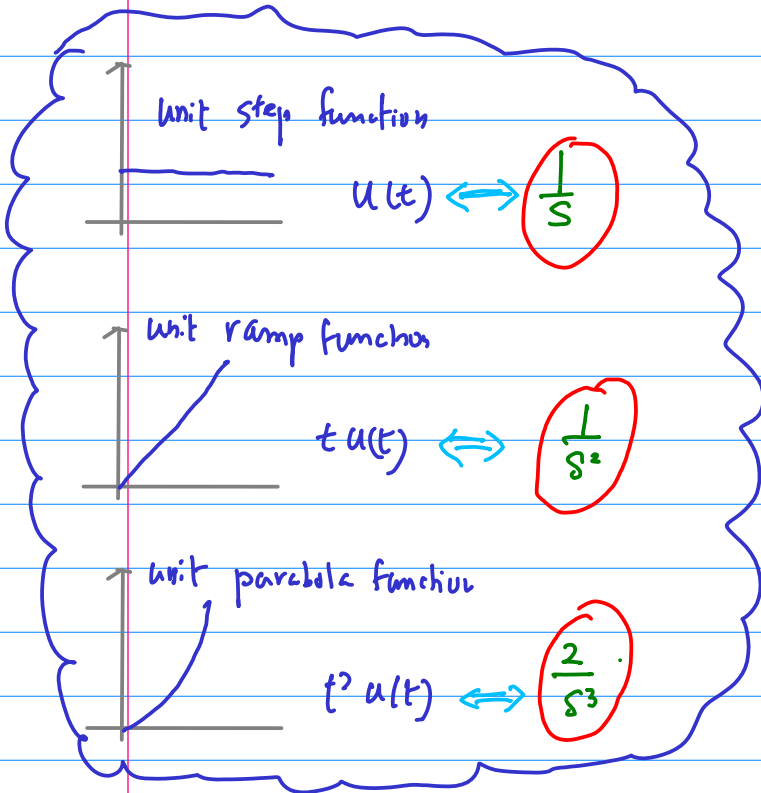 unit step function
u(t) ⇔ 1/s
unit ramp function
t u(t) ⇔ 1/s²
unit parabola function
t² u(t) ⇔ 2/s³